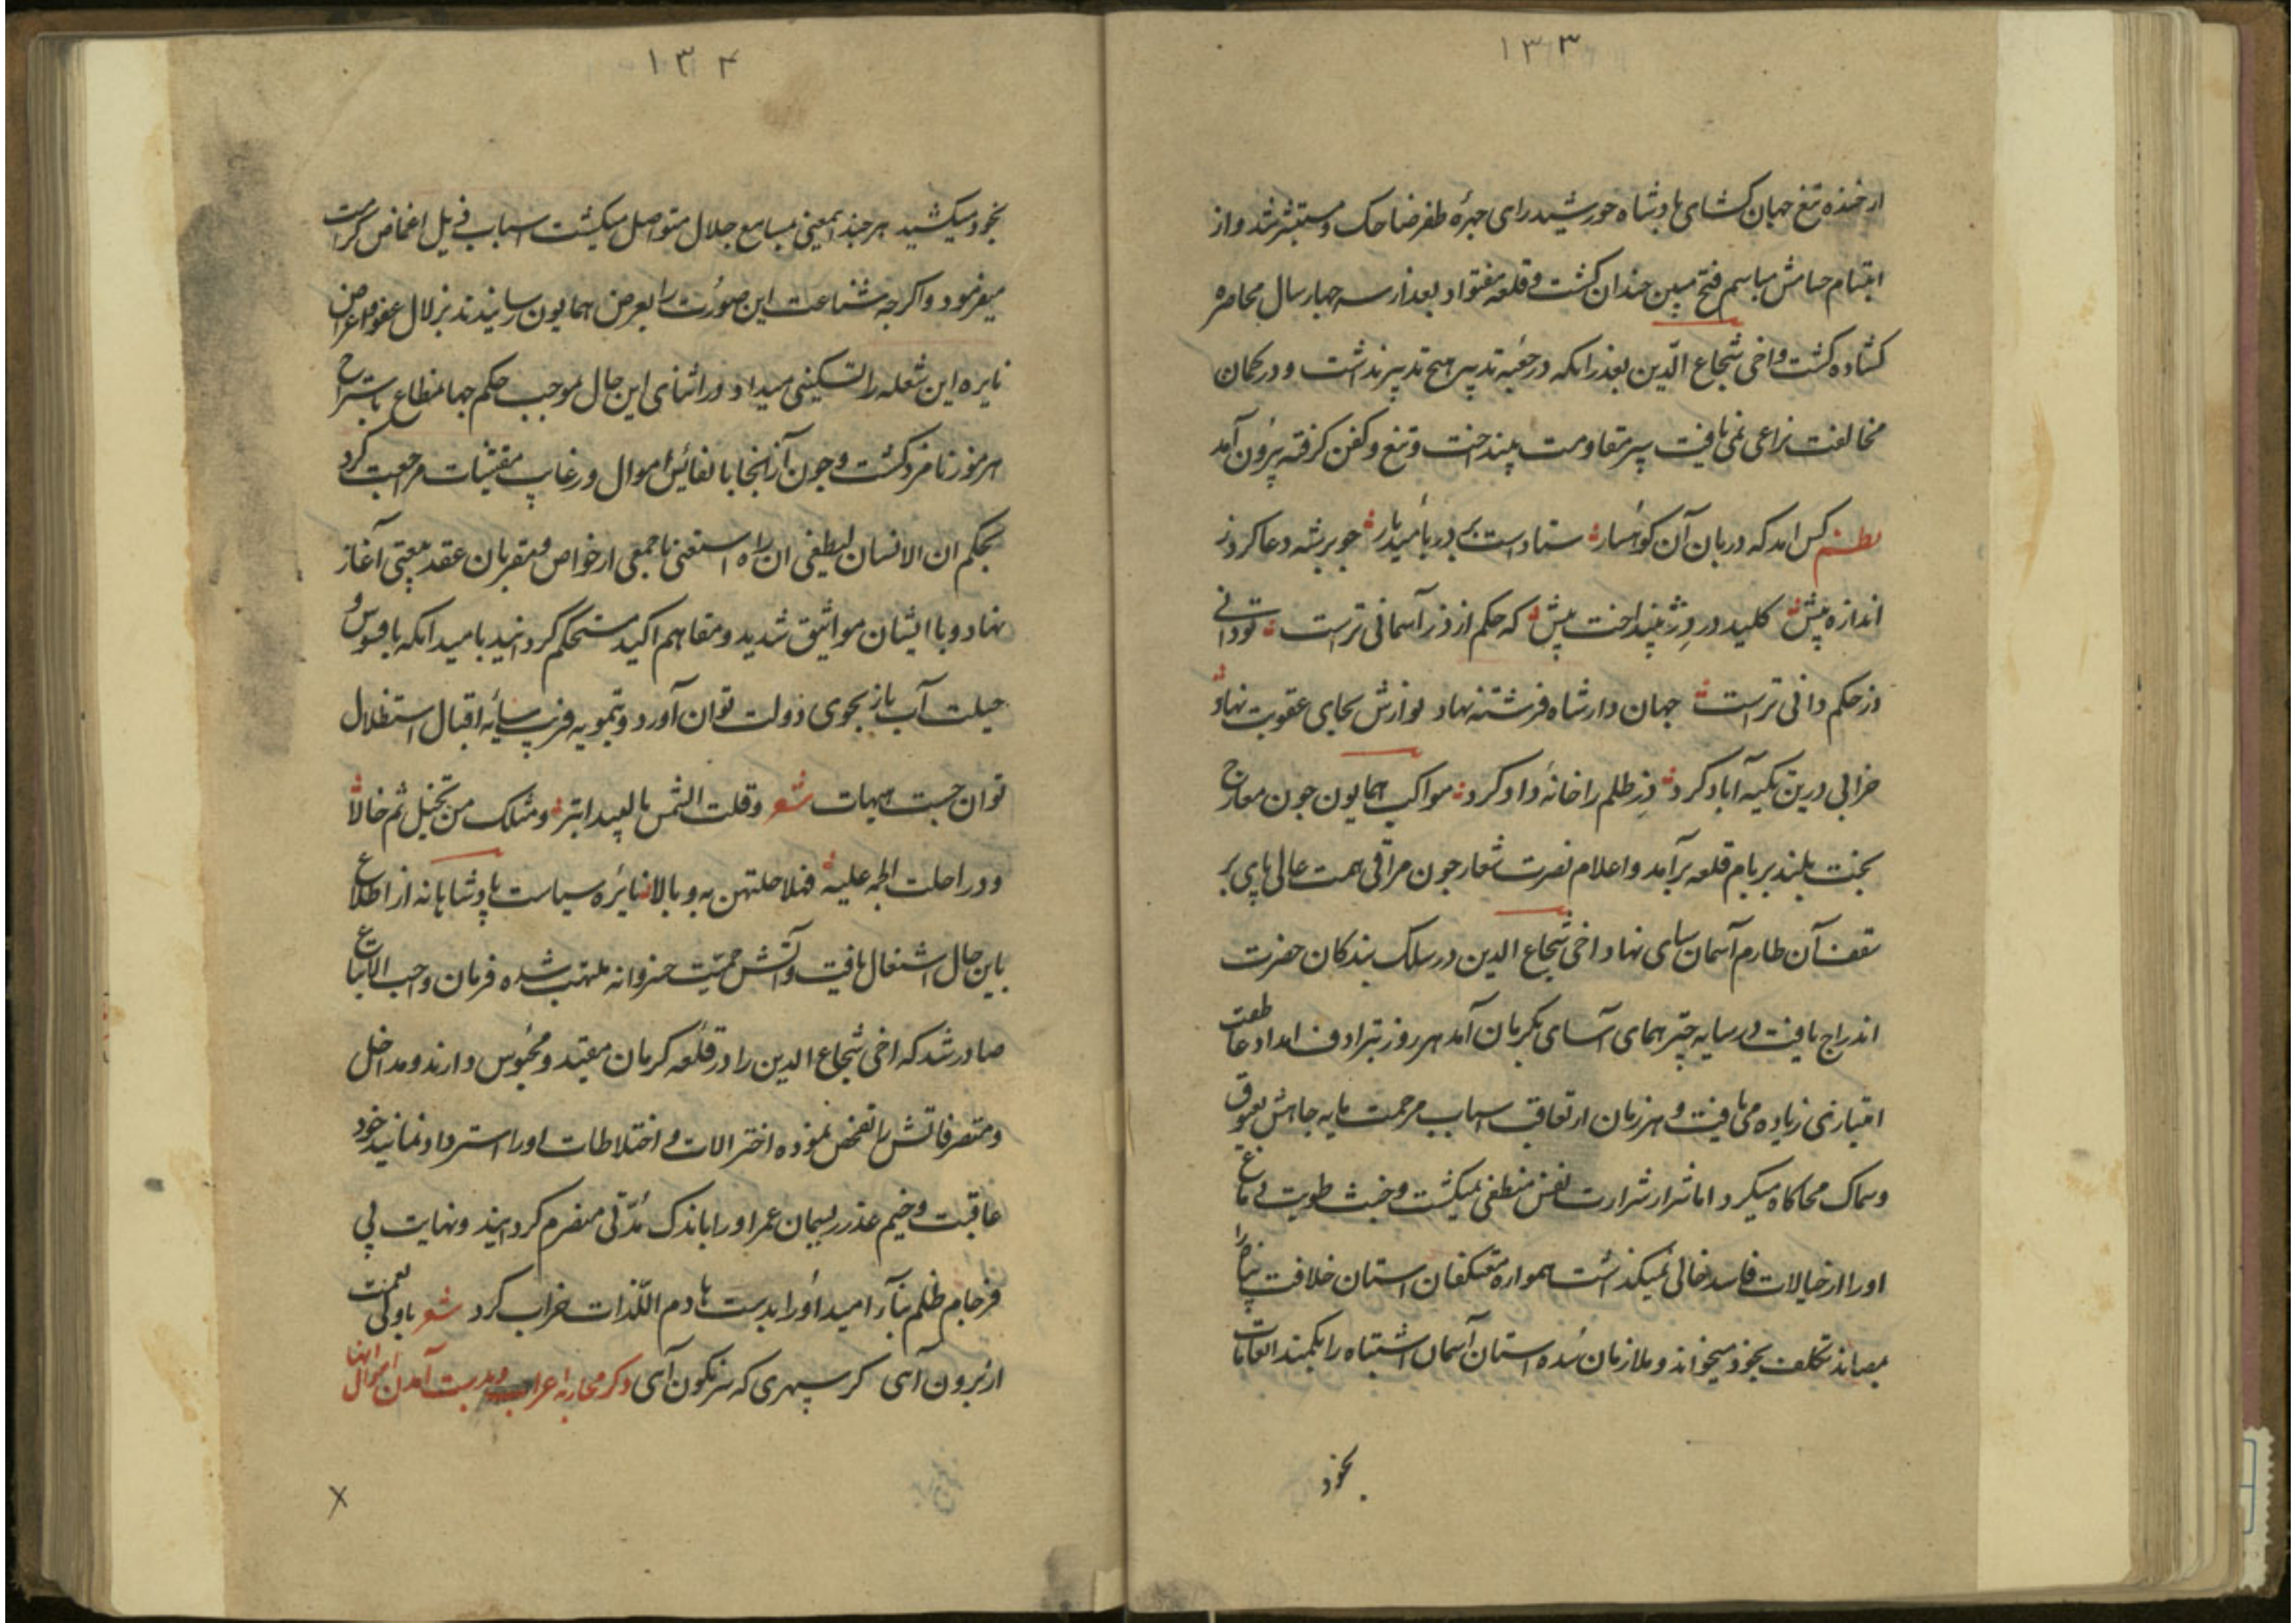 ۱۳۳
از خنده تیغ جهان کشای پادشاه خورشید رای چهرهٔ ظفر ضاحک و مستبشر شد و از
ابتسام حسامش مباسم فتح مبین خندان کشت و قلعه مفتواد بعد از سه چهار سال محاصره
کشاده کشت و اخی شجاع الدین بعد از انکه در جعبه تدبیر هیچ تدبیر نداشت و در کمان
مخالفت نزاعی نمی یافت سپر مقاومت بینداخت و تیغ و کفن کرفته بیرون آمد
نظم کس امد که دربان آن کوهسار ستاداست بر در بامید بار جو بر شه دعا کرد ز
اندازه پیش کلید در دژ بینداخت پیش که حکم از دز آسمانی تراست تو دانی
دز حکم دانی تراست جهان دار شاه فرشته نهاد نوازش بجای عقوبت نهاد
خرابی درین تکیه آباد کرد دز ظلم را خانهٔ داد کرد مواکب همایون جون معارج
بخت بلند بر بام قلعه برآمد و اعلام نصرت شعار جون مراقی همت عالی پای بر
سقف آن طارم آسمان سای نهاد اخی شجاع الدین در سلک بندکان حضرت
اندراج یافت در سایه چتر همای آسای بکرمان آمد هر روز بترادف امداد عاطفت
امتیازی زیاده می یافت و هر زمان از تعاقب اسباب مرحمت پایه جاهش بعیوق
و سماک محاکاه میکرد اما شرار شرارت نفس منطفی نمیکشت و خبث طویت دماغ
اورا از خیالات فاسد خالی نمیکذاشت همواره معتکفان استان خلافت پناه را
بمصاید تکلف بخود میخواند و ملازمان سده استان آسمان اشتباه را بکمند التفات
بخود
۱۳۴
بخود میکشید هر چند اینمعنی بمسامع جلال متواصل میکشت اسباب ذیل اغماض کرامت
میفرمود و اکرجه شناعت این صورت را بعرض همایون رسانیدند بزلال عفو و اغماض
نایره این شعله را تسکینی میداد در اثنای این حال بموجب حکم جهانمطاع باستخراج
هرموز نامزد کشت و جون از آنجا با نفایس اموال و رغایب مقتنیات مراجعت کرد
بحکم ان الانسان لیطغی ان راه استغنی با جمعی از خواص و مقربان عقد بیعتی آغاز
نهاد و با ایشان مواثیق شدید و مفاهم اکید مستحکم کردانید بامید انکه بافسوس و
حیلت آب باز بجوی دولت توان آورد و بتمویه فریب سایهٔ اقبال استظلال
توان جست هیهات شعر وقلت الشمس بالبیدا تبر ومثلک من تخیل ثم خالا
و در احلت علیه بالا نایرهٔ سیاست پادشاهانه از اطلاع
باین حال اشتعال یافت و آتش حمیت خسروانه ملتهب شده فرمان واجب الاتباع
صادر شد که اخی شجاع الدین را در قلعه کرمان مقید و محبوس دارند و مداخل
و متصرفاتش را تفحص نموده اختزالات و اختلاطات اورا استرداد نمایند خود
عاقبت وخیم غدر ریسمان عمر اورا باندک مدتی منصرم کردانید و نهایت بی
فرجام ظلم بنای امید اورا بدست هادم اللذات خراب کرد شعر با ولی نعمت
ار برون آی کر سپهری که سرنکون آی ذکر محاربه اعراب و بدست آمدن اموال ایشان